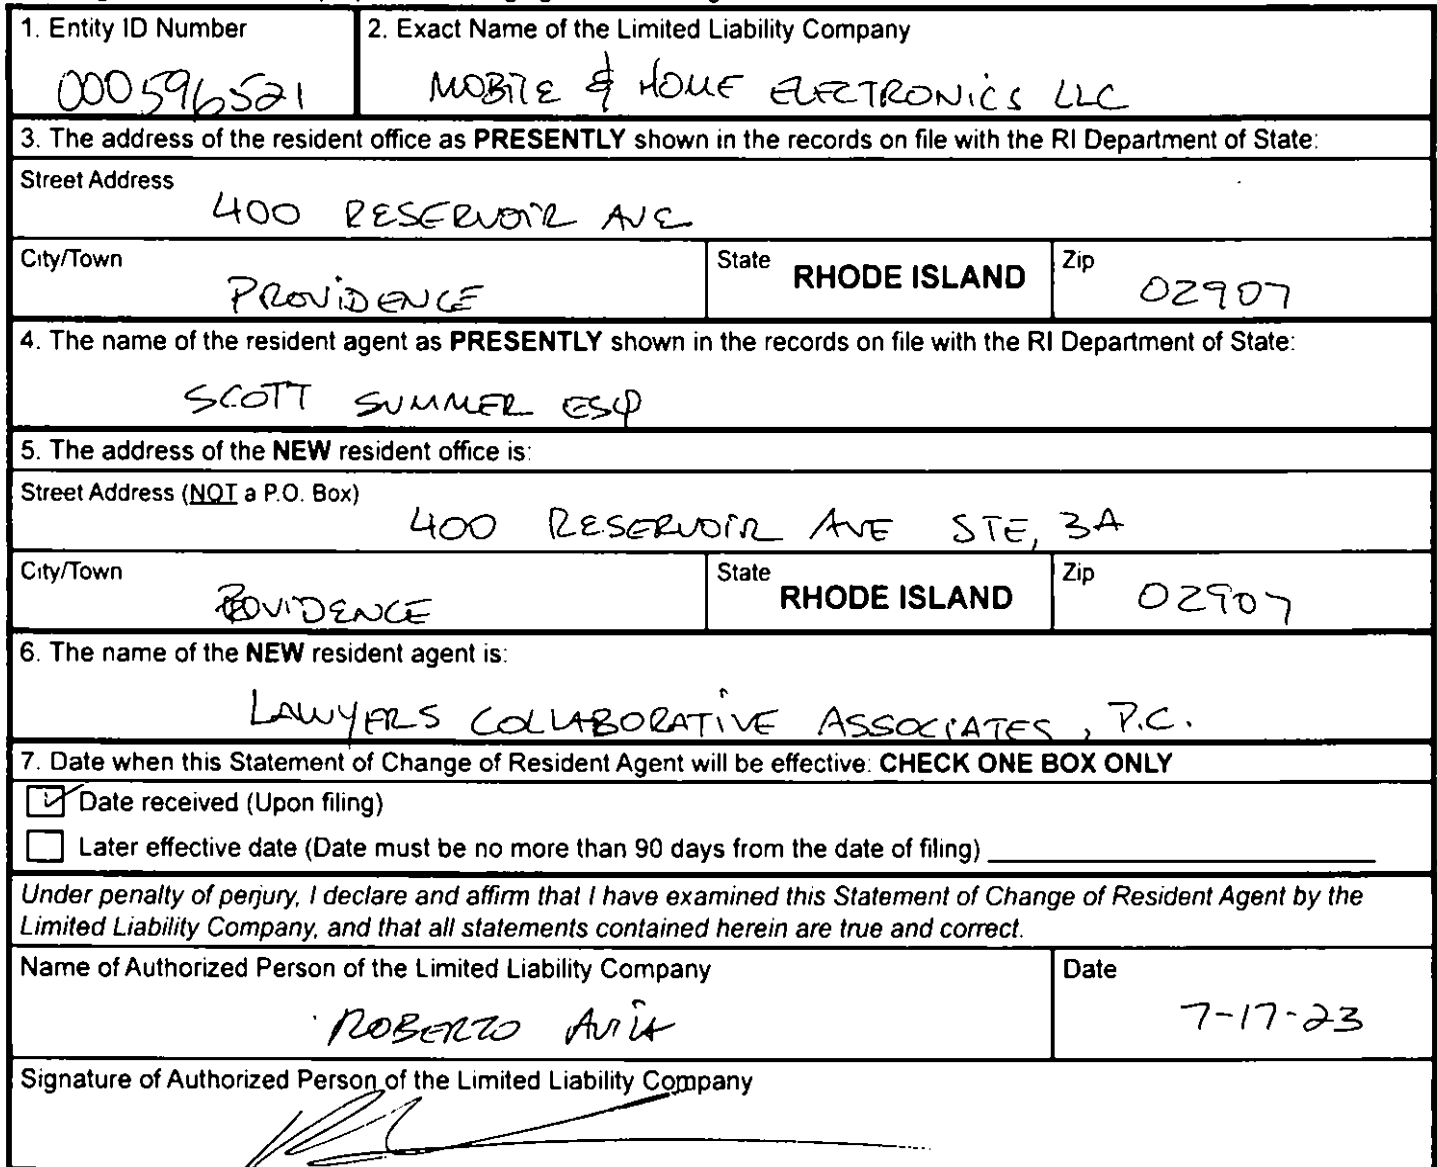 1. Entity ID Number
000596521
2. Exact Name of the Limited Liability Company
MOBILE & HOME ELECTRONICS LLC
3. The address of the resident office as PRESENTLY shown in the records on file with the RI Department of State:
Street Address
400 RESERVOIR AVE
City/Town
PROVIDENCE
State RHODE ISLAND
Zip
02907
4. The name of the resident agent as PRESENTLY shown in the records on file with the RI Department of State:
SCOTT SUMMER ESQ
5. The address of the NEW resident office is:
Street Address (NOT a P.O. Box)
400 RESERVOIR AVE STE, 3A
City/Town
POVIDENCE
State RHODE ISLAND
Zip
02907
6. The name of the NEW resident agent is:
LAWYERS COLLABORATIVE ASSOCIATES, P.C.
7. Date when this Statement of Change of Resident Agent will be effective: CHECK ONE BOX ONLY
Date received (Upon filing)
Later effective date (Date must be no more than 90 days from the date of filing)
Under penalty of perjury, I declare and affirm that I have examined this Statement of Change of Resident Agent by the
Limited Liability Company, and that all statements contained herein are true and correct.
Name of Authorized Person of the Limited Liability Company
ROBERTO AVILA
Date
7-17-23
Signature of Authorized Person of the Limited Liability Company